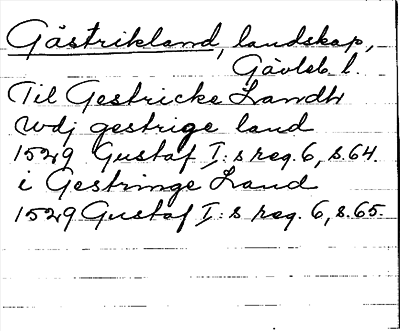 Gästrikland, landskap,
Gävleb. l.
Til Gestricke Landh
Wdj gestrige land
1529 Gustaf I:s reg. 6, s. 64.
i Gestringe Land
1529 Gustaf I:s reg. 6, s. 65.